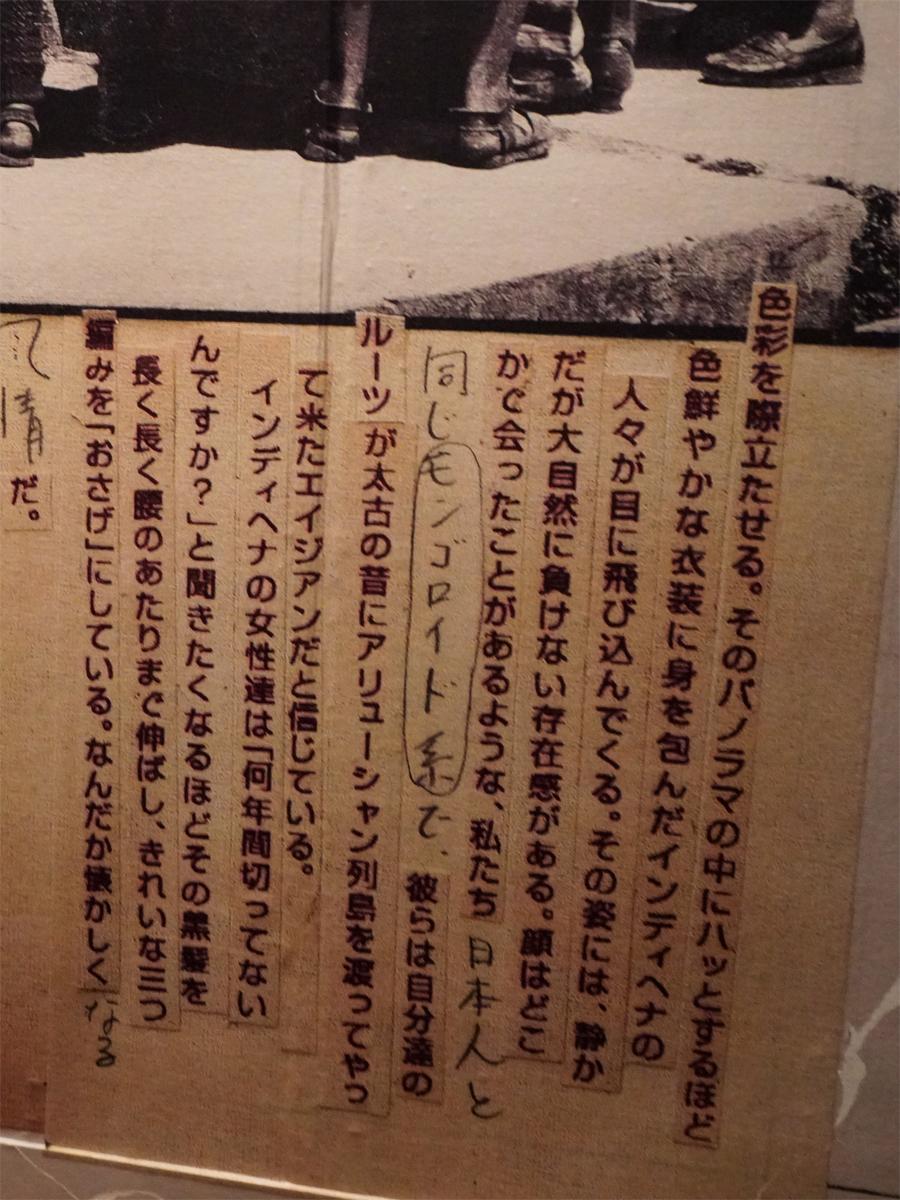 色彩を際立たせる。そのパノラマの中にハッとするほど
色鮮やかな衣装に身を包んだインディヘナの
人々が目に飛び込んでくる。その姿には、静か
だが大自然に負けない存在感がある。顔はどこ
かで会ったことがあるような、私たち日本人と
同じモンゴロイド系で、彼らは自分達の
ルーツが太古の昔にアリューシャン列島を渡ってやっ
て来たエイジアンだと信じている。
インディヘナの女性達は「何年間切ってない
んですか?」と聞きたくなるほどその黒髪を
長く長く腰のあたりまで伸ばし、きれいな三つ
編みを「おさげ」にしている。なんだか懐かしくなる
風情だ。